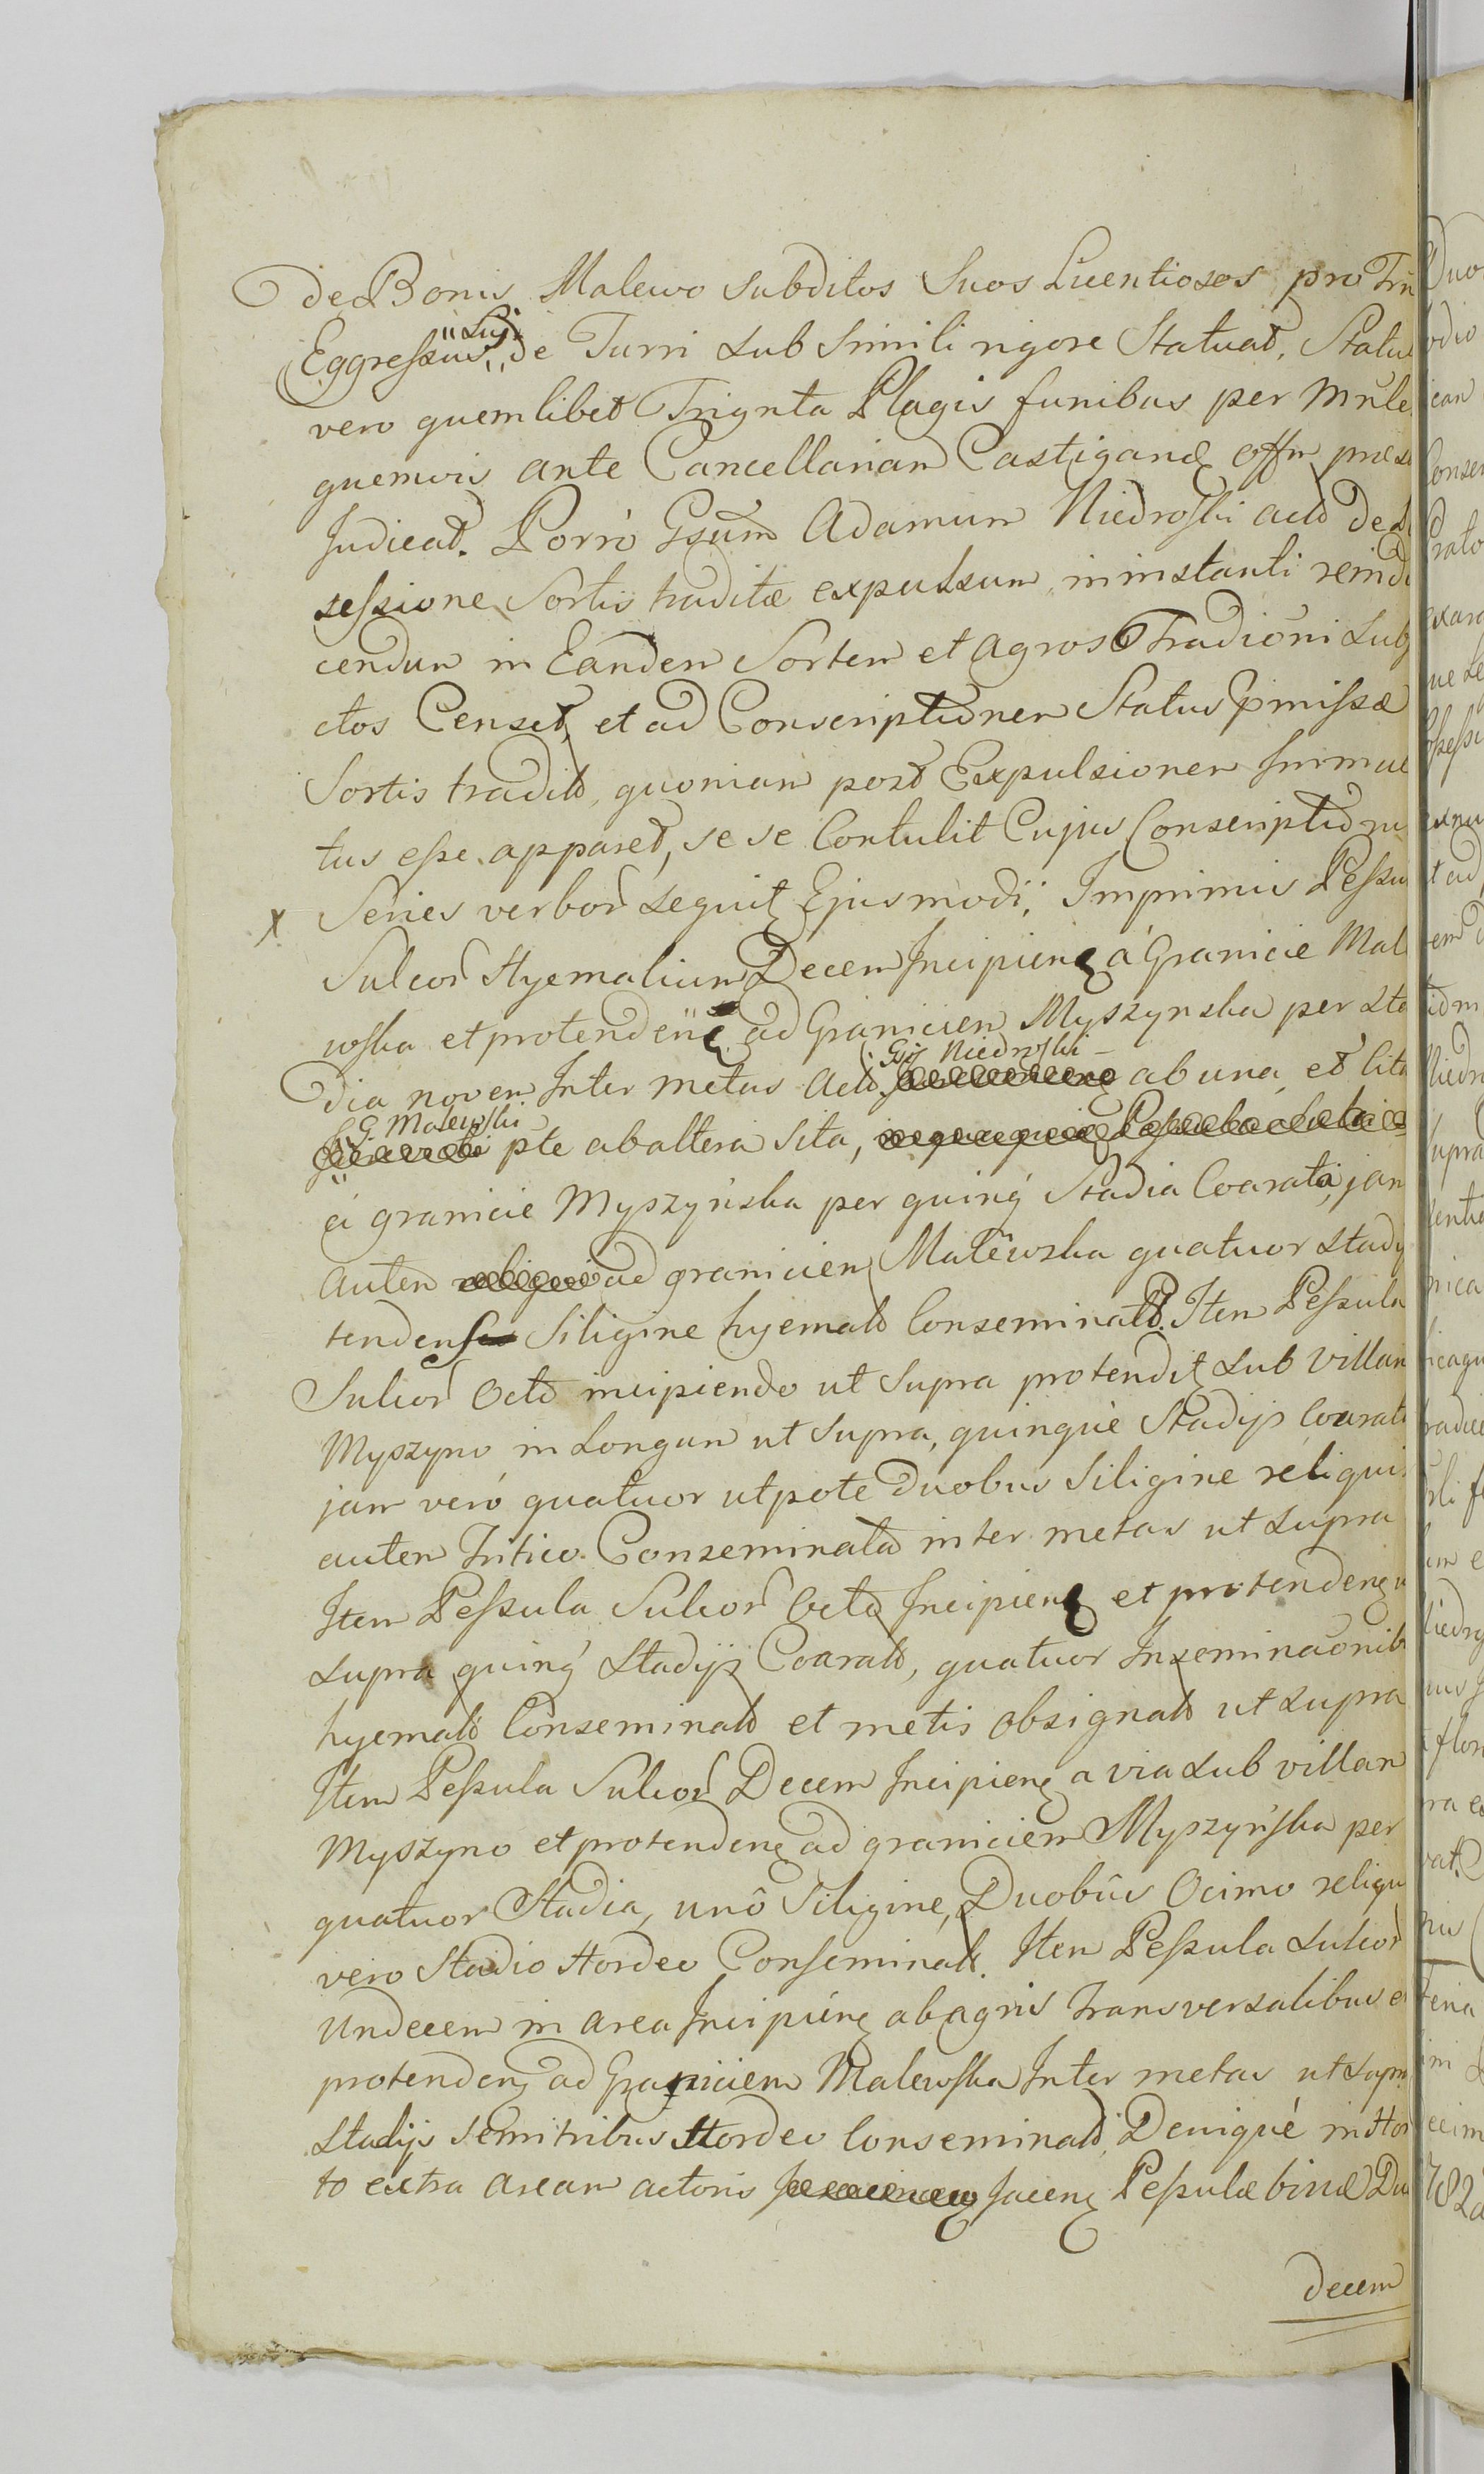 de Bonis Malewo subditos Suos Licentiosos pro Tri
Eggressus Suj de Turri sub Simili rigore Statuat, Statu
vero quemlibet Triginta Plagis funibus per
quemvis ante Cancellariam Castigand offm
Judicat. Porrò Gsum Adamum Niedroski de
sessione Sortis traditæ expulsum, in instanti reindu
cendum in Eandem Sortem et agros Tradioni Subj
ctos Censet, et ad Conscriptionem Status pmissæ
Sortis tradit, quoniam post Expulsionem Immu
tus esse apparet, se se Contulit Cujus Conscriptionis
x Series verbor sequit Ejusmodi; Imprimis Pessu
Sulcor Hyemalium Decem Incipien à Granicie Mal
wska et protenden ad Graniciem Myszynska per Sta
dia novem Inter metas Gsi Niedroski ab una, et
G. Malewski pte ab altera sita,
à granicie Myszyńska per quinq Stadia Coarata, jam
autem ad graniciem Malewska quatuor Stadij
tenden Siligine hyemali Conseminat. Item Pessula
Sulcor Octo incipiendo ut Supra protendit sub Villam
Myszyno in Longum ut Supra, quinque Stadijs Coarat
jam verò quatuor utpote Duobus Siligine reliqui
autem Tritico Conseminata inter metas ut supra
Item Pessula Sulcor Octo Incipien et protenden
supra quinq Stadijs Coarat, quatuor Inseminaonib
hyemali Conseminat et metis obsignat ut supra
Item Pessula Sulcor Decem Incipien a via sub villam
Myszyno et protenden ad graniciem Myszyńska per
quatuor Stadia, unô Siligine, Duobus Ocimo reliqu
vero Stadio Hordeo Conseminat. Item Pessula Sulcor
undecem in area Incipien ab agris Transversalibus e
protenden ad Graniciem Malewska Inter metas ut Supr
Stadijs semitribus Hordeo Conseminat, Denique in Hor
to extra aream actoris Jacen Pessulæ binæ Du
decem